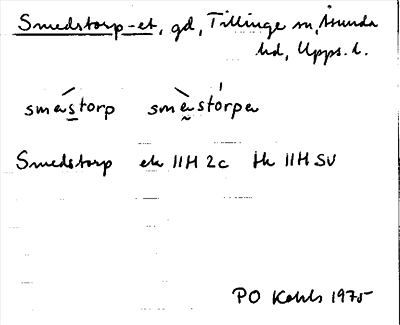 Smedstorp-et, gd, Tillinge sn, Åsunda
hd, Upps. l.
smæstorp smæstórpe
Smedstorp ek 11H 2c tk 11H SV
PO Kohls 1975